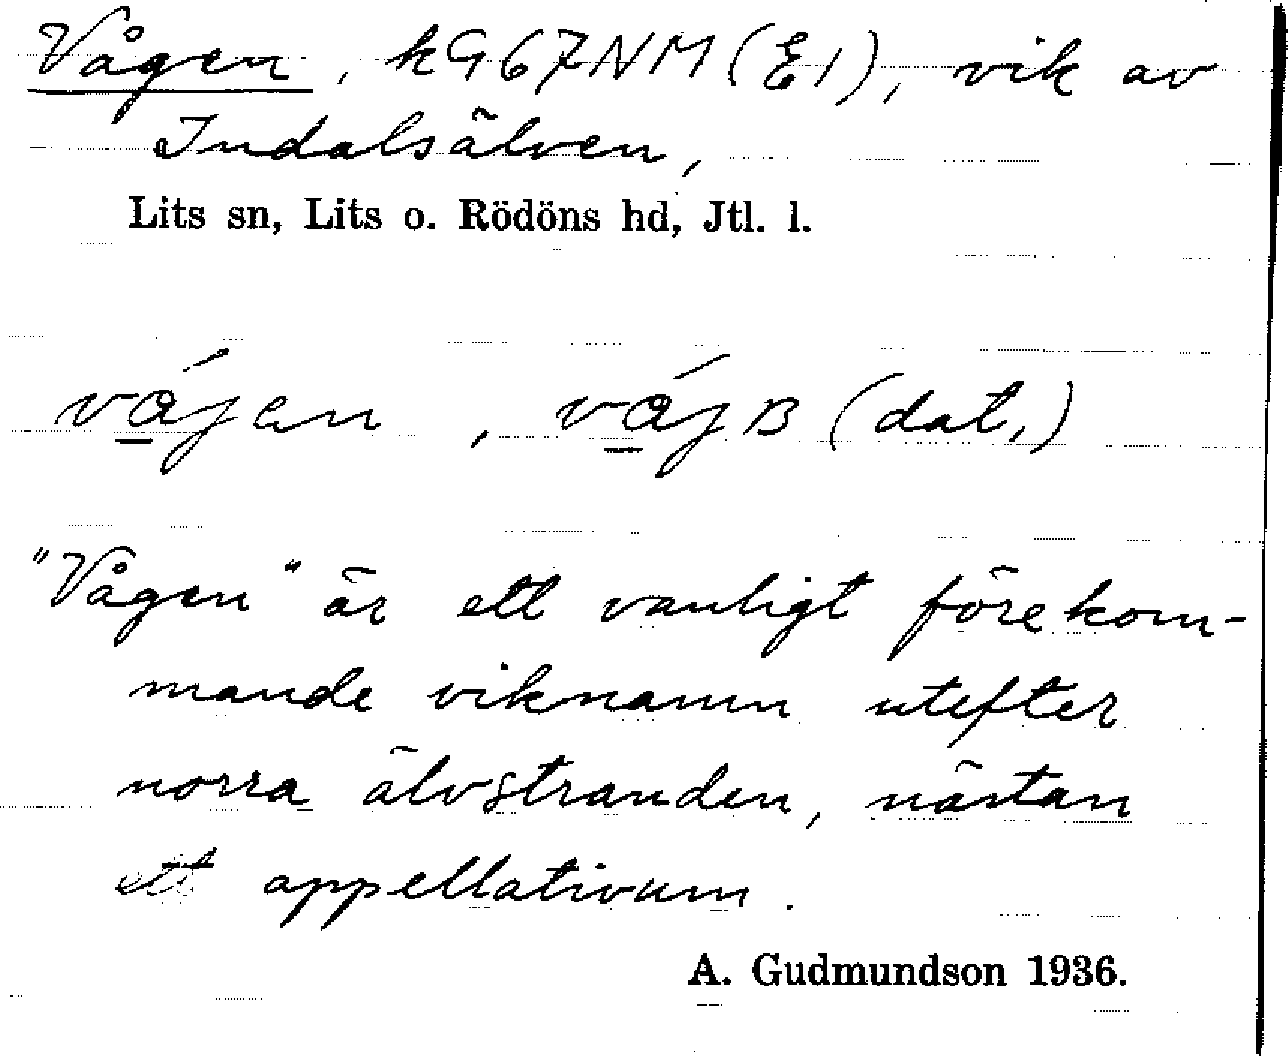 Vågen, k967NM(E1), vik av
Indalsälven,
Lits sn, Lits o. Rödöns hd, Jtl. l.
vájen, vájB (dat.)
"Vågen" är ett vanligt förekom-
mande viknamn utefter
norra älvstranden, nästan
ett appellativum.
A. Gudmundson 1936.